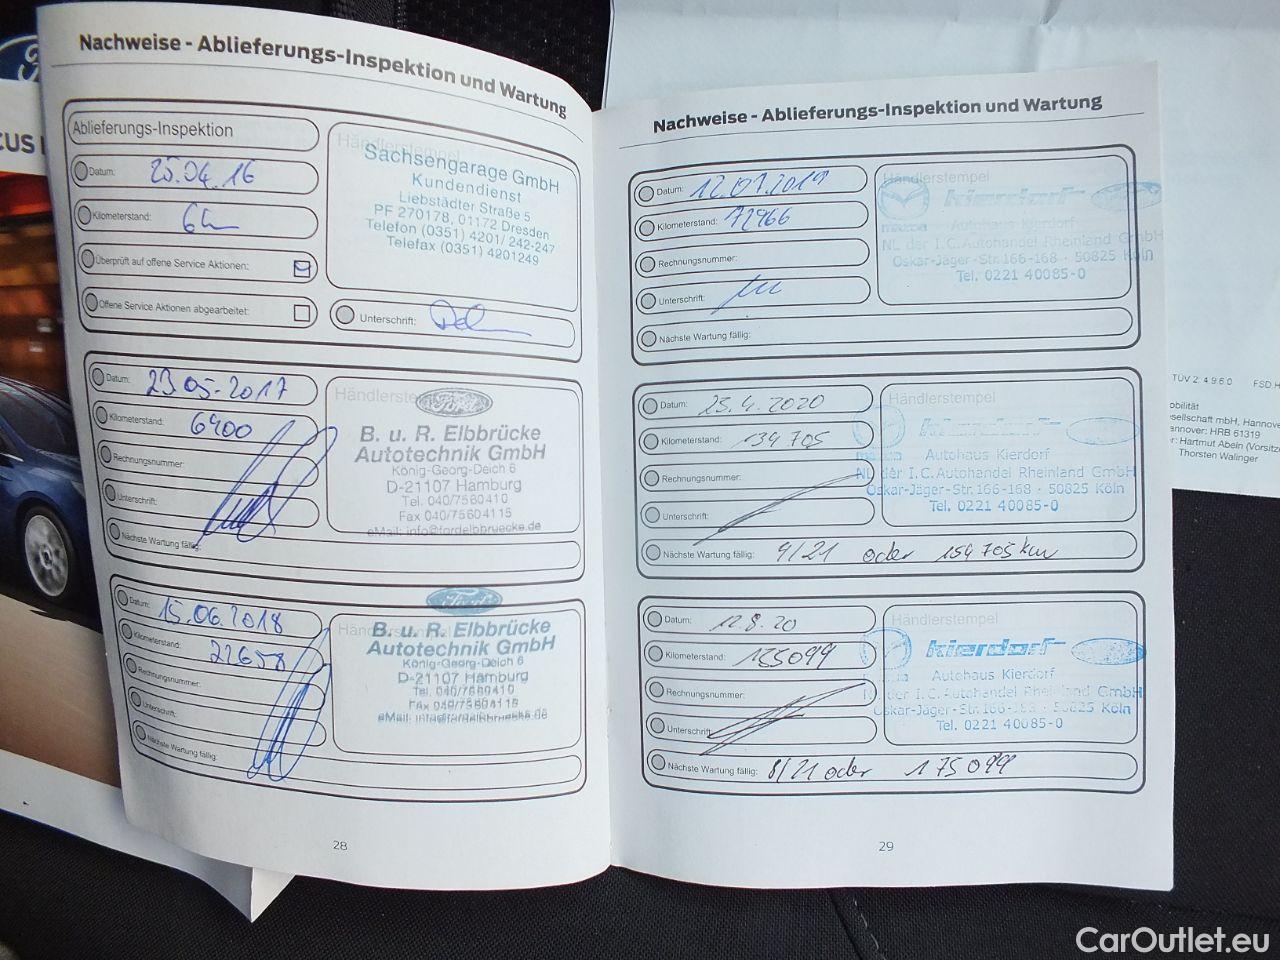 CUS
Nachweise - Ablieferungs-Inspektion und Wartung
Ablieferungs-Inspektion
Datum: 25.04.16
Kilometerstand:
Überprüft auf offene Service Aktionen:
Offene Service Aktionen abgearbeitet:
Händlerstempel
Sachsengarage GmbH
Kundendienst
Liebstädter Straße 5
PF 270178, 01172 Dresden
Telefon (0351) 4201/ 242-247
Telefax (0351) 4201249
Unterschrift:
Datum: 23.05.2017
Kilometerstand: 6900
Rechnungsnummer:
Unterschrift:
Nächste Wartung fällig:
Händlerstempel
Ford
B. u. R. Elbbrücke
Autotechnik GmbH
König-Georg-Deich 6
D-21107 Hamburg
Tel. 040/7560410
Fax 040/75604115
eMail: info@fordelbbruecke.de
Datum: 15.06.2018
Kilometerstand: 22658
Rechnungsnummer:
Unterschrift:
Nächste Wartung fällig:
Ford
B. u. R. Elbbrücke
Autotechnik GmbH
König-Georg-Deich 6
D-21107 Hamburg
Tel. 040/7560410
Fax 040/75604115
28
Nachweise - Ablieferungs-Inspektion und Wartung
Datum: 12.07.2019
Kilometerstand: 72966
Rechnungsnummer:
Unterschrift:
Nächste Wartung fällig:
Händlerstempel
mazda kierdorf
Autohaus Kierdorf
NL der I.C.Autohandel Rheinland GmbH
Oskar-Jäger-Str.166-168 · 50825 Köln
Tel. 0221 40085-0
Datum: 23.4.2020
Kilometerstand: 134705
Rechnungsnummer:
Unterschrift:
Nächste Wartung fällig: 4/21 oder 154705km
Händlerstempel
kierdorf
Autohaus Kierdorf
NL der I.C.Autohandel Rheinland GmbH
Oskar-Jäger-Str.166-168 · 50825 Köln
Tel. 0221 40085-0
Datum: 12.8.20
Kilometerstand: 155099
Rechnungsnummer:
Unterschrift
Nächste Wartung fällig: 8/21 oder 175099
Händlerstempel
kierdorf
Autohaus Kierdorf
NL der I.C.Autohandel Rheinland GmbH
Oskar-Jäger-Str.166-168 · 50825 Köln
Tel. 0221 40085-0
29
TÜV 2: 4 9 6 0 FSD.H
obilität
esellschaft mbH, Hannove
annover: HRB 61319
r: Hartmut Abeln (Vorsitze
Thorsten Walinger
CarOutlet.eu